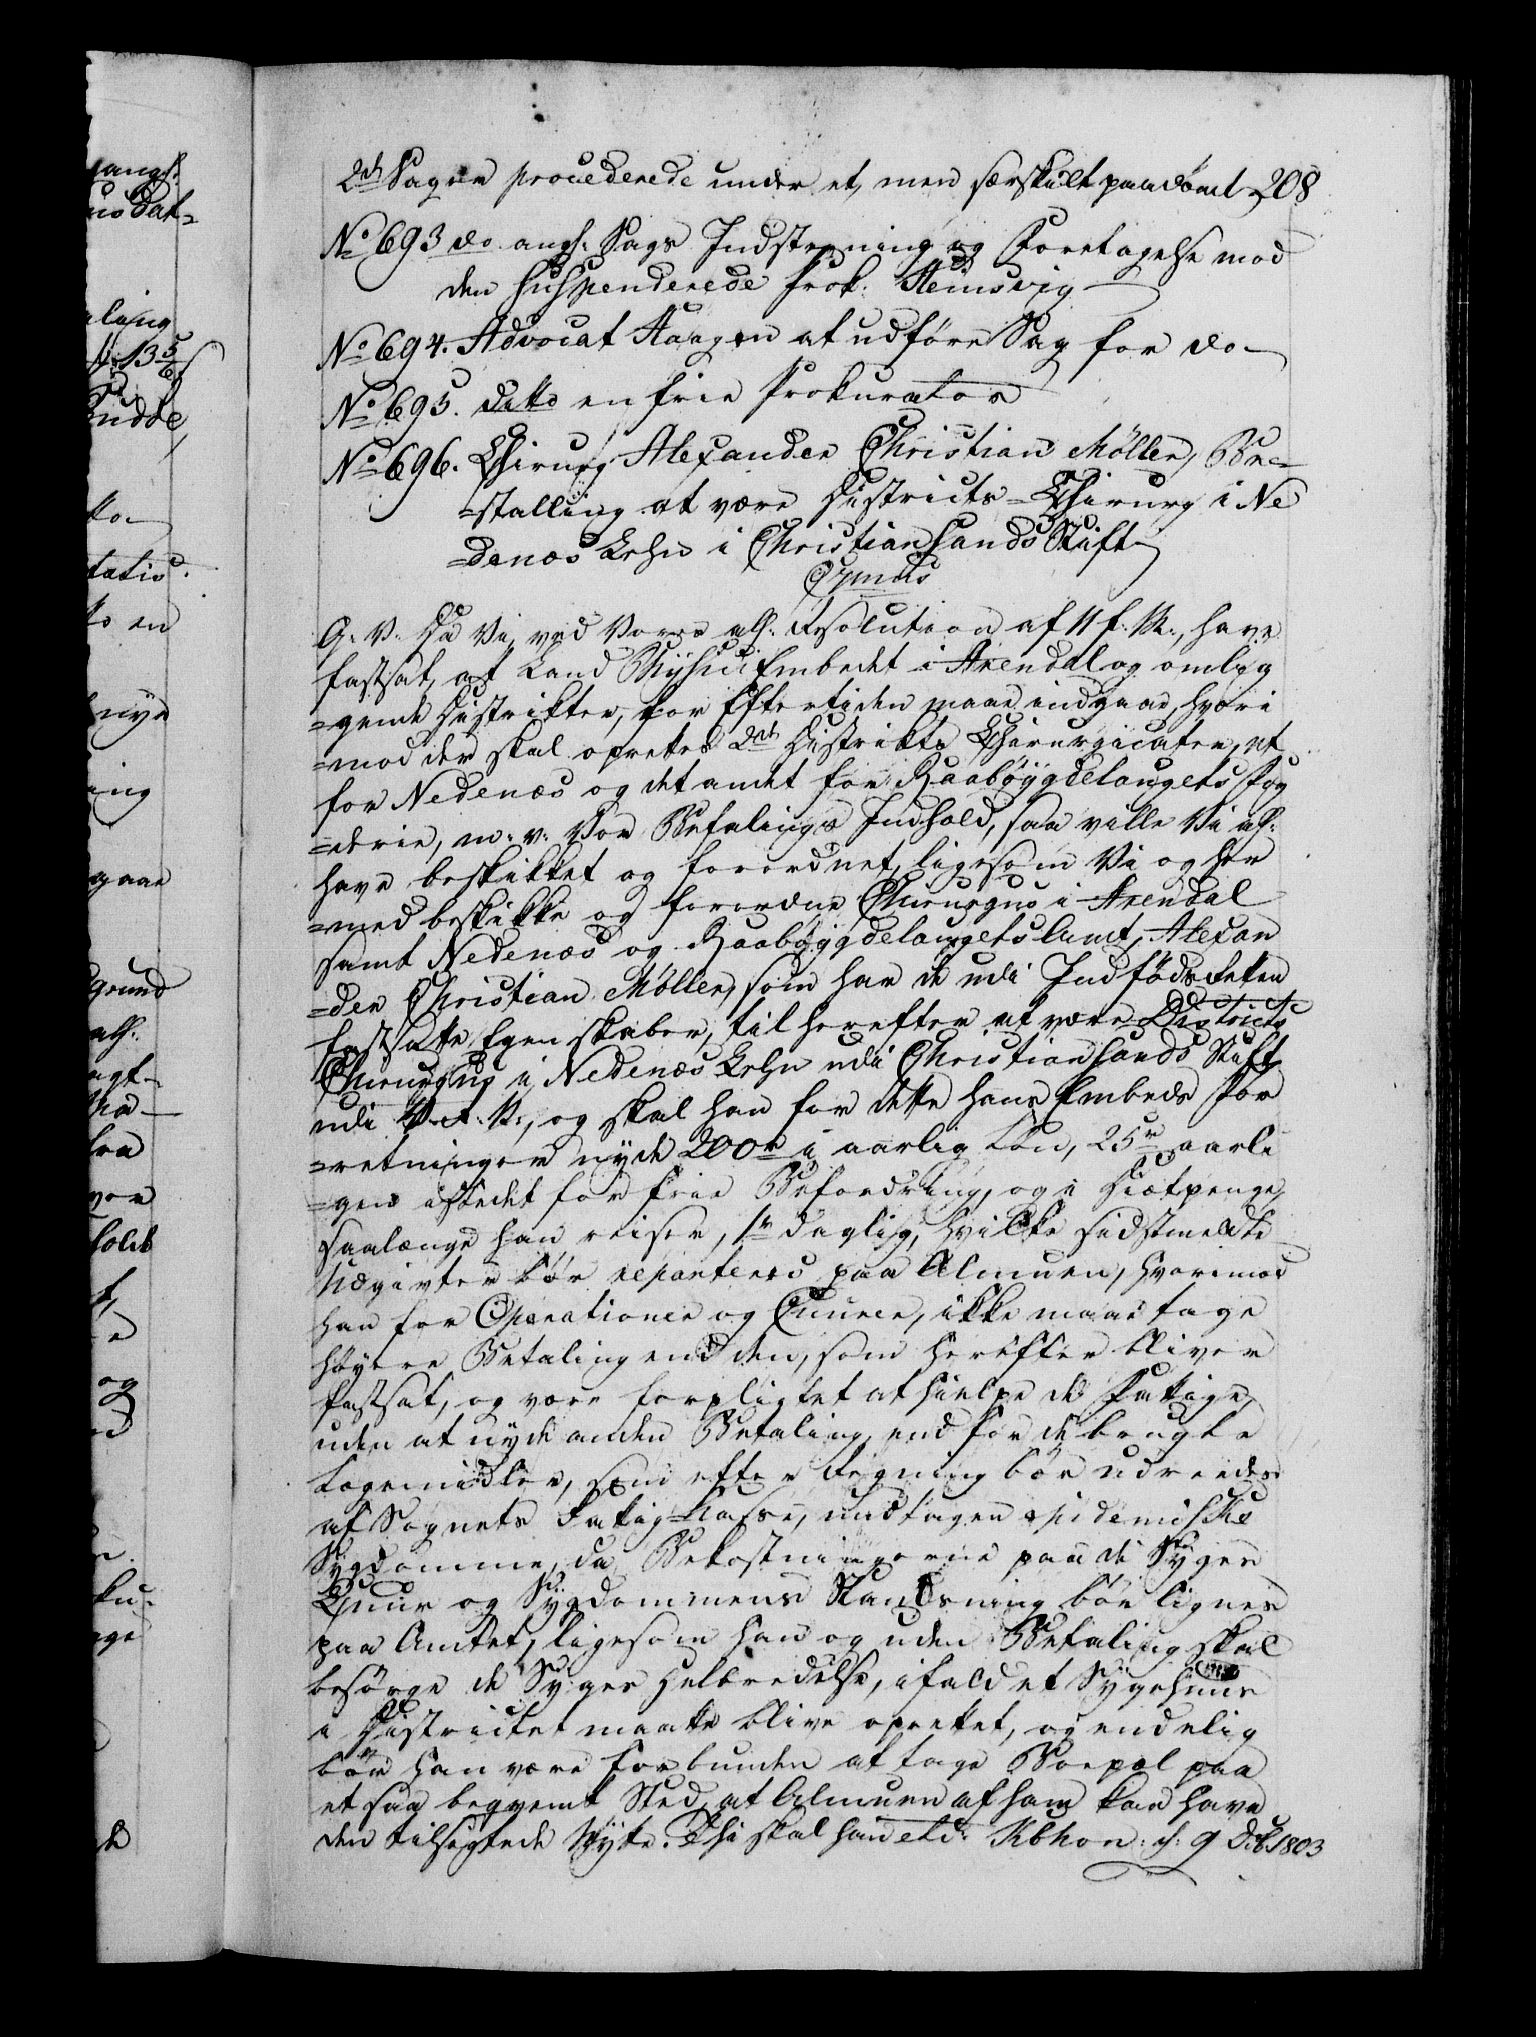 2de Sager procederede under et, men særskilt paadömt 208
No 693 do angl: Sags Indstevning og Foretagelse mod
den suspenderede Prok: Steinsvig
No 694. Advocat Haagen at udföre Sag for do
No 695. ditto en frie Prokurator
No 696. Chirurg Alexander Christian Möller, Be=
=stalling at være Districts-Chirurg i Ne
=denæs Lehn i Christiansands Stift
G: V: Da Vi, ved Vores all: Resolution af 11 f: M:, have
fastsat, at Land Physici Embedet i Arendal og omlig
=gende Distrikter, for Eftertiden maae indgaae, hvori
=mod der skal oprettes 2de Distrikts Chirurgicater, et
for Nedenæs og det andet for Raabøygdelaugets Fog
=derie, m: v: Vor Befalings Indhold, saa ville Vi all:
have beskikket og forordnet, ligesom Vi og her
=med beskikke og forordne Chirurgus i Arendal
samt Nedenæs og Raabøygdelaugets Amt, Alexan
=der Christian Møller, som har de udi Indfødsretten
fastsatte Egenskaber, til herefter at være Districts
Chirurgus i Nedenæs Lehn udi Christiansands Stift
udi V. R. N:, og skal han for dette hans Embeds For
=retninger nyde 200 r i aarlig Løn, 25 r aarli
=gen istedet for frie Befordring, og i Diætpenge,
saalænge han reiser, 1 r daglig, hvilke sidstmeldte
Udgivter bør reparteres paa Almuen, hvorimod
han for Operationer og Cuurer, ikke maae tage
høyere Betaling end den, som herefter bliver
fastsat, og være forpligtet at hielpe de Fattige,
uden at nyde anden Betaling, end for de brugte
Lægemidler, som efter Regning bør udredes
af Sognets Fattig-Kasse, undtagen epidemiske
Sygdomme, da Bekostningerne paa de Syges
Cuur og Sygdommens Standsning bør lignes
paa Amtet, ligesom han og uden Betaling skal
besørge de Syges Helbredelse, ifald et Sygehuus
i Districtet maatte blive oprettet, og endelig
bør han være forbunden at tage Boepæl paa
et saa beqvemt Sted, at Almuen af ham kan have
den tilsigtede Nytte. Thi skal han etc: Kbhvn: d: 9 Dcb 1803